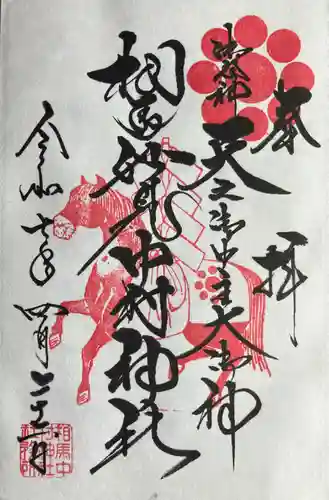 奉拝
御祭神
天之御中主大神
相馬妙見中村神社
令和七年四月二十一日
相馬中
村神社
社務所